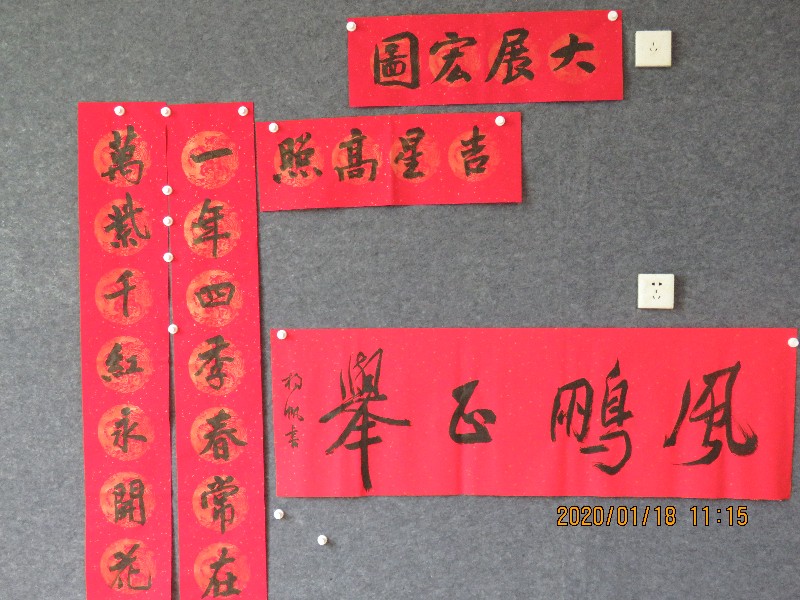 大展宏圖
吉星高照
一年四季春常在
萬紫千紅永開花
風鵬正舉
楊帆書
2020/01/18 11:15